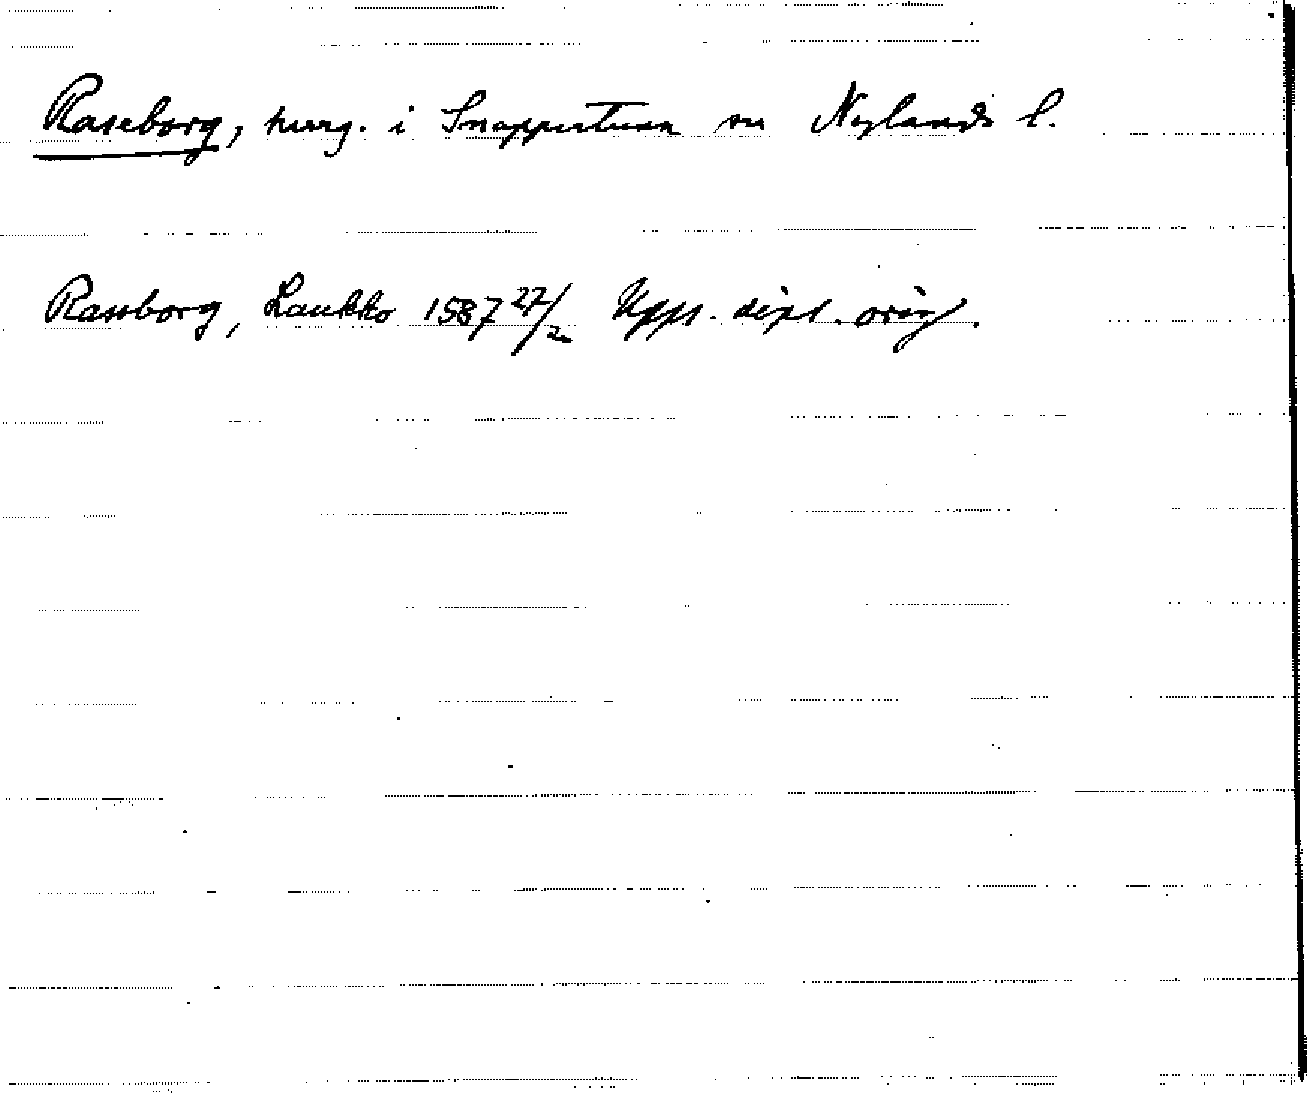 Raseborg, kung. i Snappertuna sn Nylands l.
Raseborg, Laukko 1587 27/2 Upps. dipl. orig.